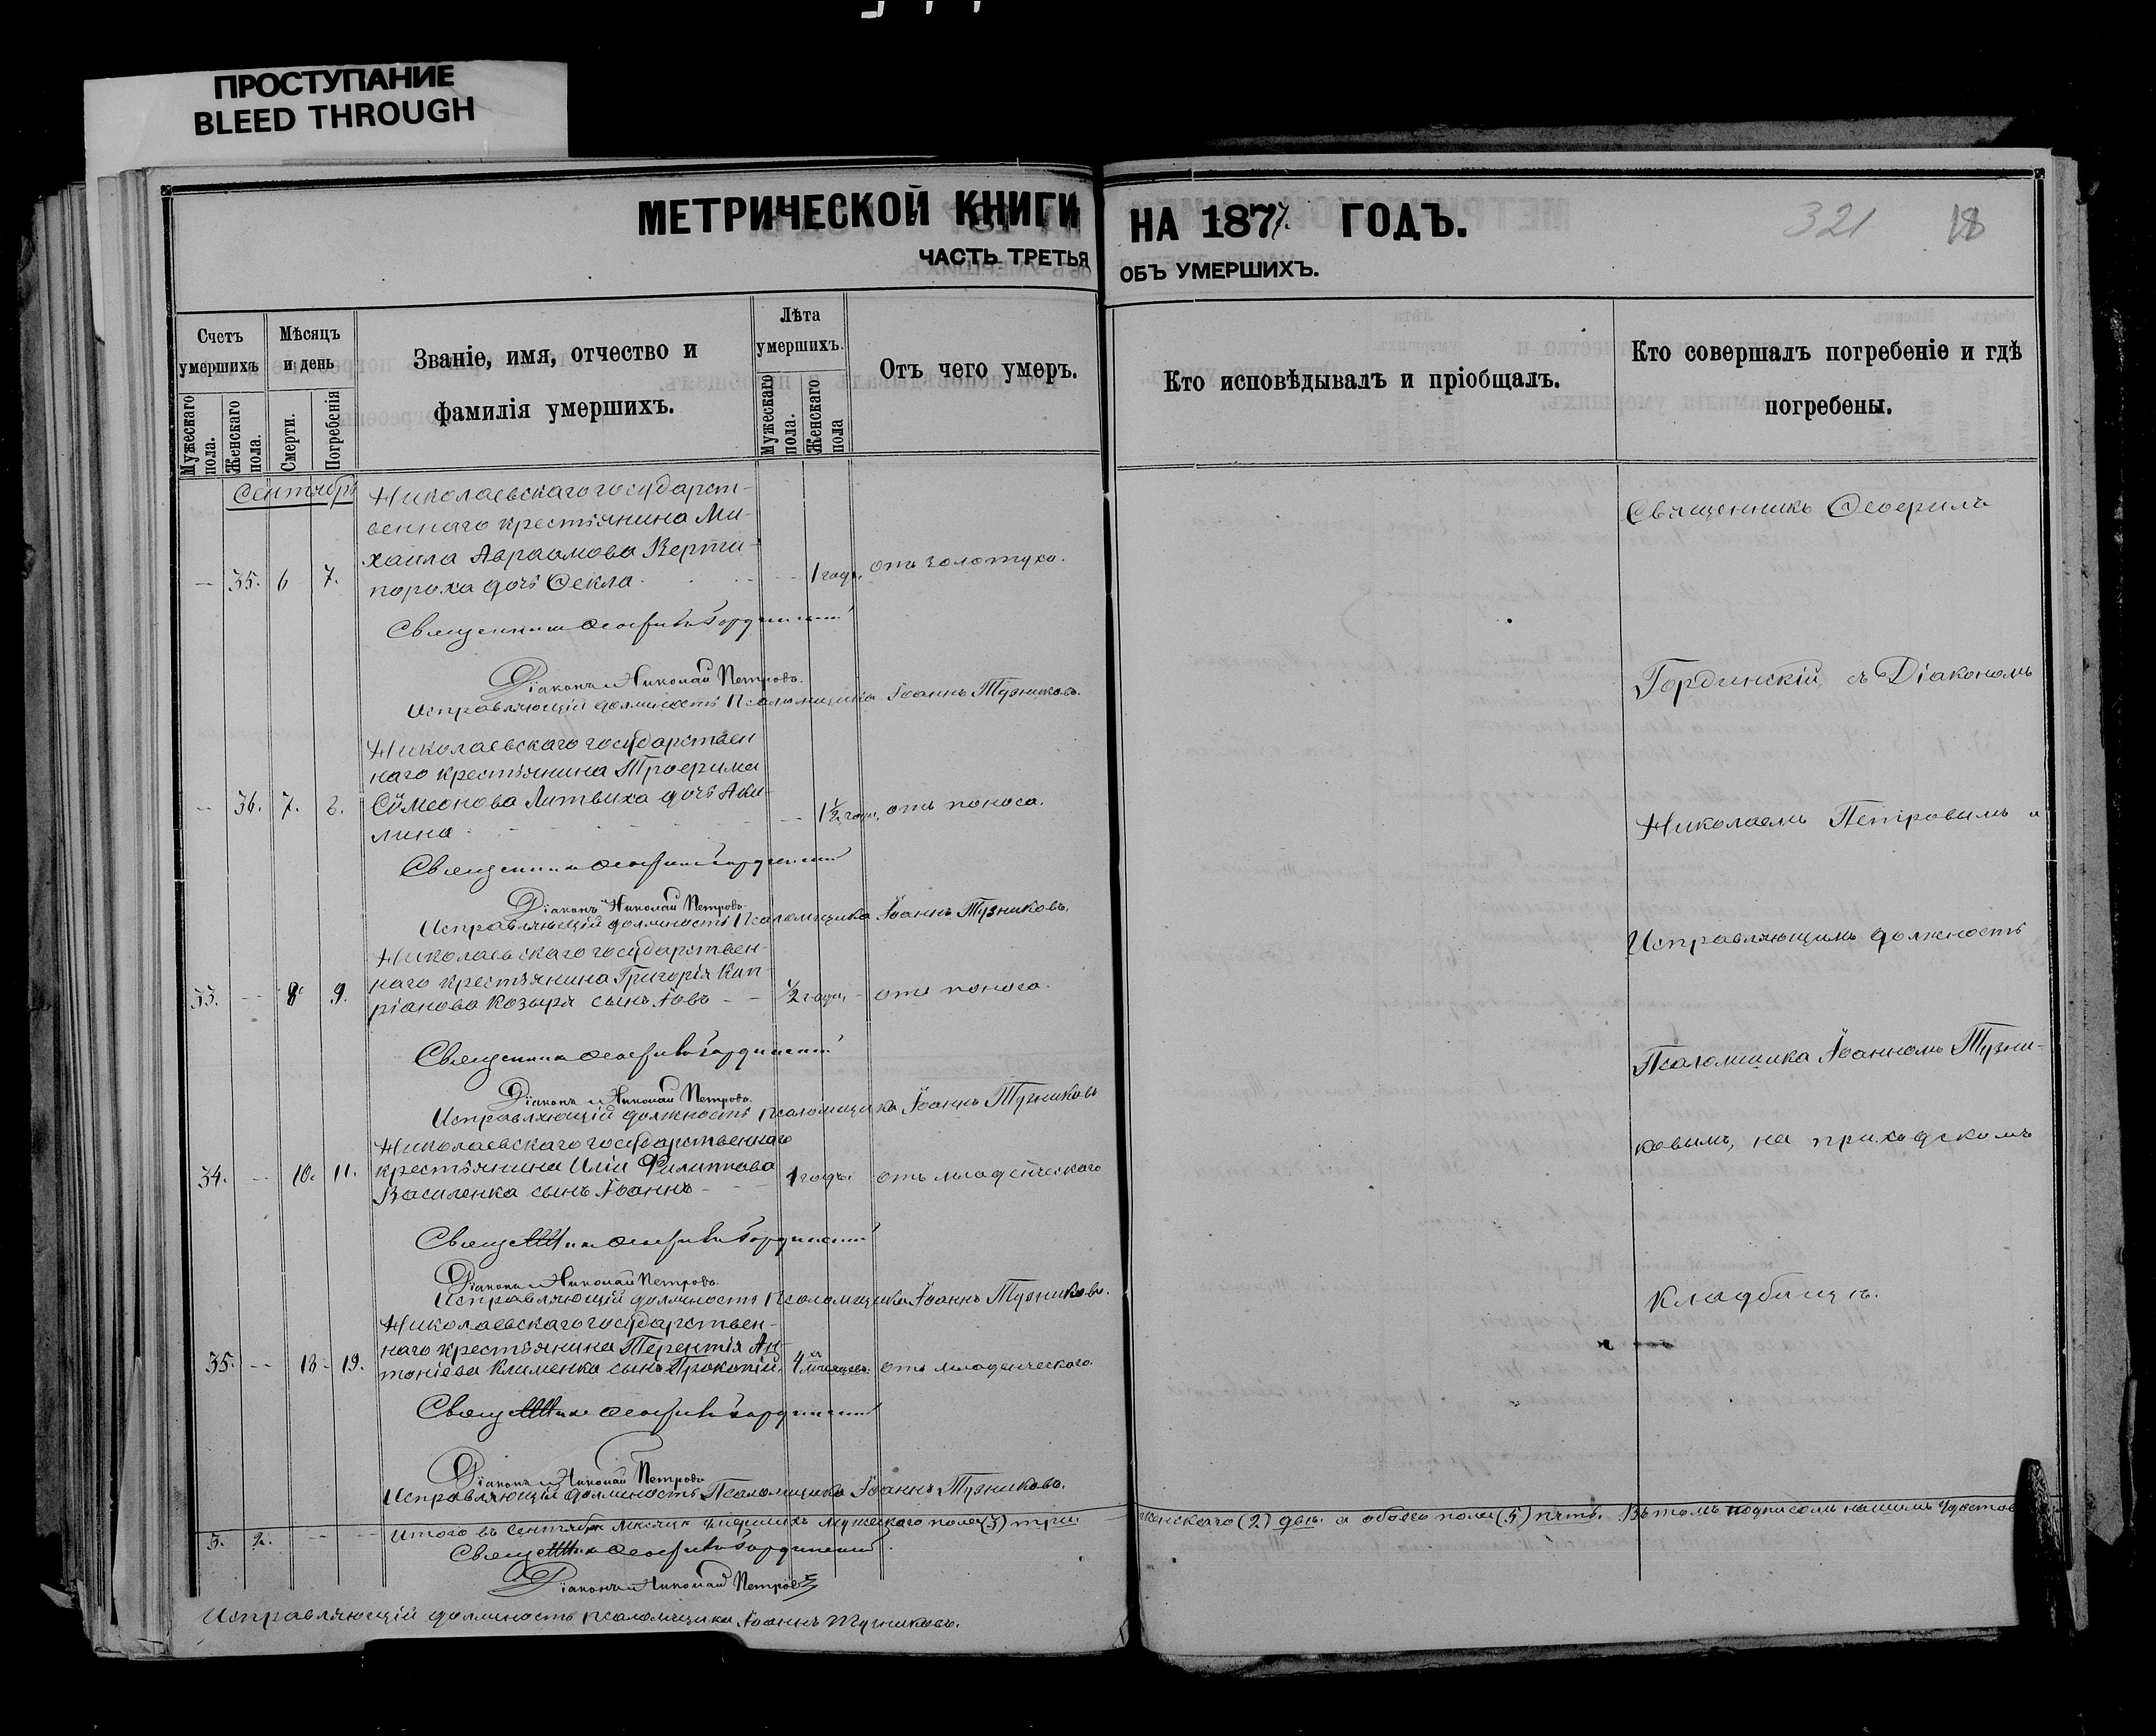 ПРОСТУПАНИЕ
BLEED THROUGH
МЕТРИЧЕСКОЙ КНИГИ НА 1877 ГОДЪ.
321 18
ЧАСТЬ ТРЕТЬЯ ОБЪ УМЕРШИХЪ.
Счетъ умершихъ
Мужескаго пола.
Женскаго пола.
Мѣсяцъ и день
Смерти.
Погребенія
Званіе, имя, отчество и
фамилія умершихъ.
Лѣта умершихъ.
Мужескаго пола.
Женскаго пола
Отъ чего умеръ.
Кто исповѣдывалъ и пріобщалъ.
Кто совершалъ погребеніе и гдѣ
погребены.
Сентябрь
Николаевскаго государст-
веннаго крестьянина Ми-
хаила Авраамова Верти-
– 35. 6 7. пороха дочь Ѳекла – 1 годъ. отъ золотухи.
Священникъ Ѳеофилъ Гординскій
Діаконъ Николай Петровъ.
Исправляющій должность Псаломщика Іоаннъ Тузниковъ.
Николаевскаго государствен
наго крестьянина Трофима
– 36. 7. 8. Сѷмеонова Литвиха дочь Аки-
лина – 1½ года, отъ поноса.
Священникъ Ѳеофилъ Гординскій
Діаконъ Николай Петровъ.
Исправляющій должность Псаломщика Іоаннъ Тузниковъ.
Николаевскаго государствен-
наго крестьянина Григорія Кип
33. – 8 9. ріанова Козыря сынъ Іовъ – – ½ года, – отъ поноса.
Священникъ Ѳеофилъ Гординскій
Діаконъ Николай Петровъ.
Исправляющій должность псаломщика Іоаннъ Тузниковъ
Николаевскаго государственнаго
34. – 10. 11. крестьянина Иліи Филиппова 1 годъ. отъ младенческаго
Василенка сынъ Іоаннъ –
Священникъ Ѳеофилъ Гординскій
Діаконъ Николай Петровъ.
Исправляющій должность Псаломщика Іоаннъ Тузниковъ.
Николаевскаго государствен-
наго крестьянина Терентія Ан-
35. – 18 – 19. тоніева Клименка сынъ Прокопій, 4хъ мѣсяцевъ. отъ младенческаго
Священникъ Ѳеофилъ Гординскій
Діаконъ Николай Петровъ
Исправляющій должность Псаломщика Іоаннъ Тузниковъ.
3. 2. – – Итого въ Сентябрѣ мѣсяцѣ умершихъ мужескаго пола (3) три. женскаго (2) двѣ. а обоего пола (5) пять. Въ томъ подписомъ нашимъ удостов
Священникъ Ѳеофилъ Гординскій
Діаконъ Николай Петровъ
Исправляющій должность псаломщика Іоаннъ Тузниковъ.
Священникъ Ѳеофилъ
Гординскій, съ Діакономъ
Николаемъ Петровымъ и
Исправляющимъ должность
Псаломщика Іоанномъ Тузни-
ковымъ, на приходскомъ
кладбищѣ.